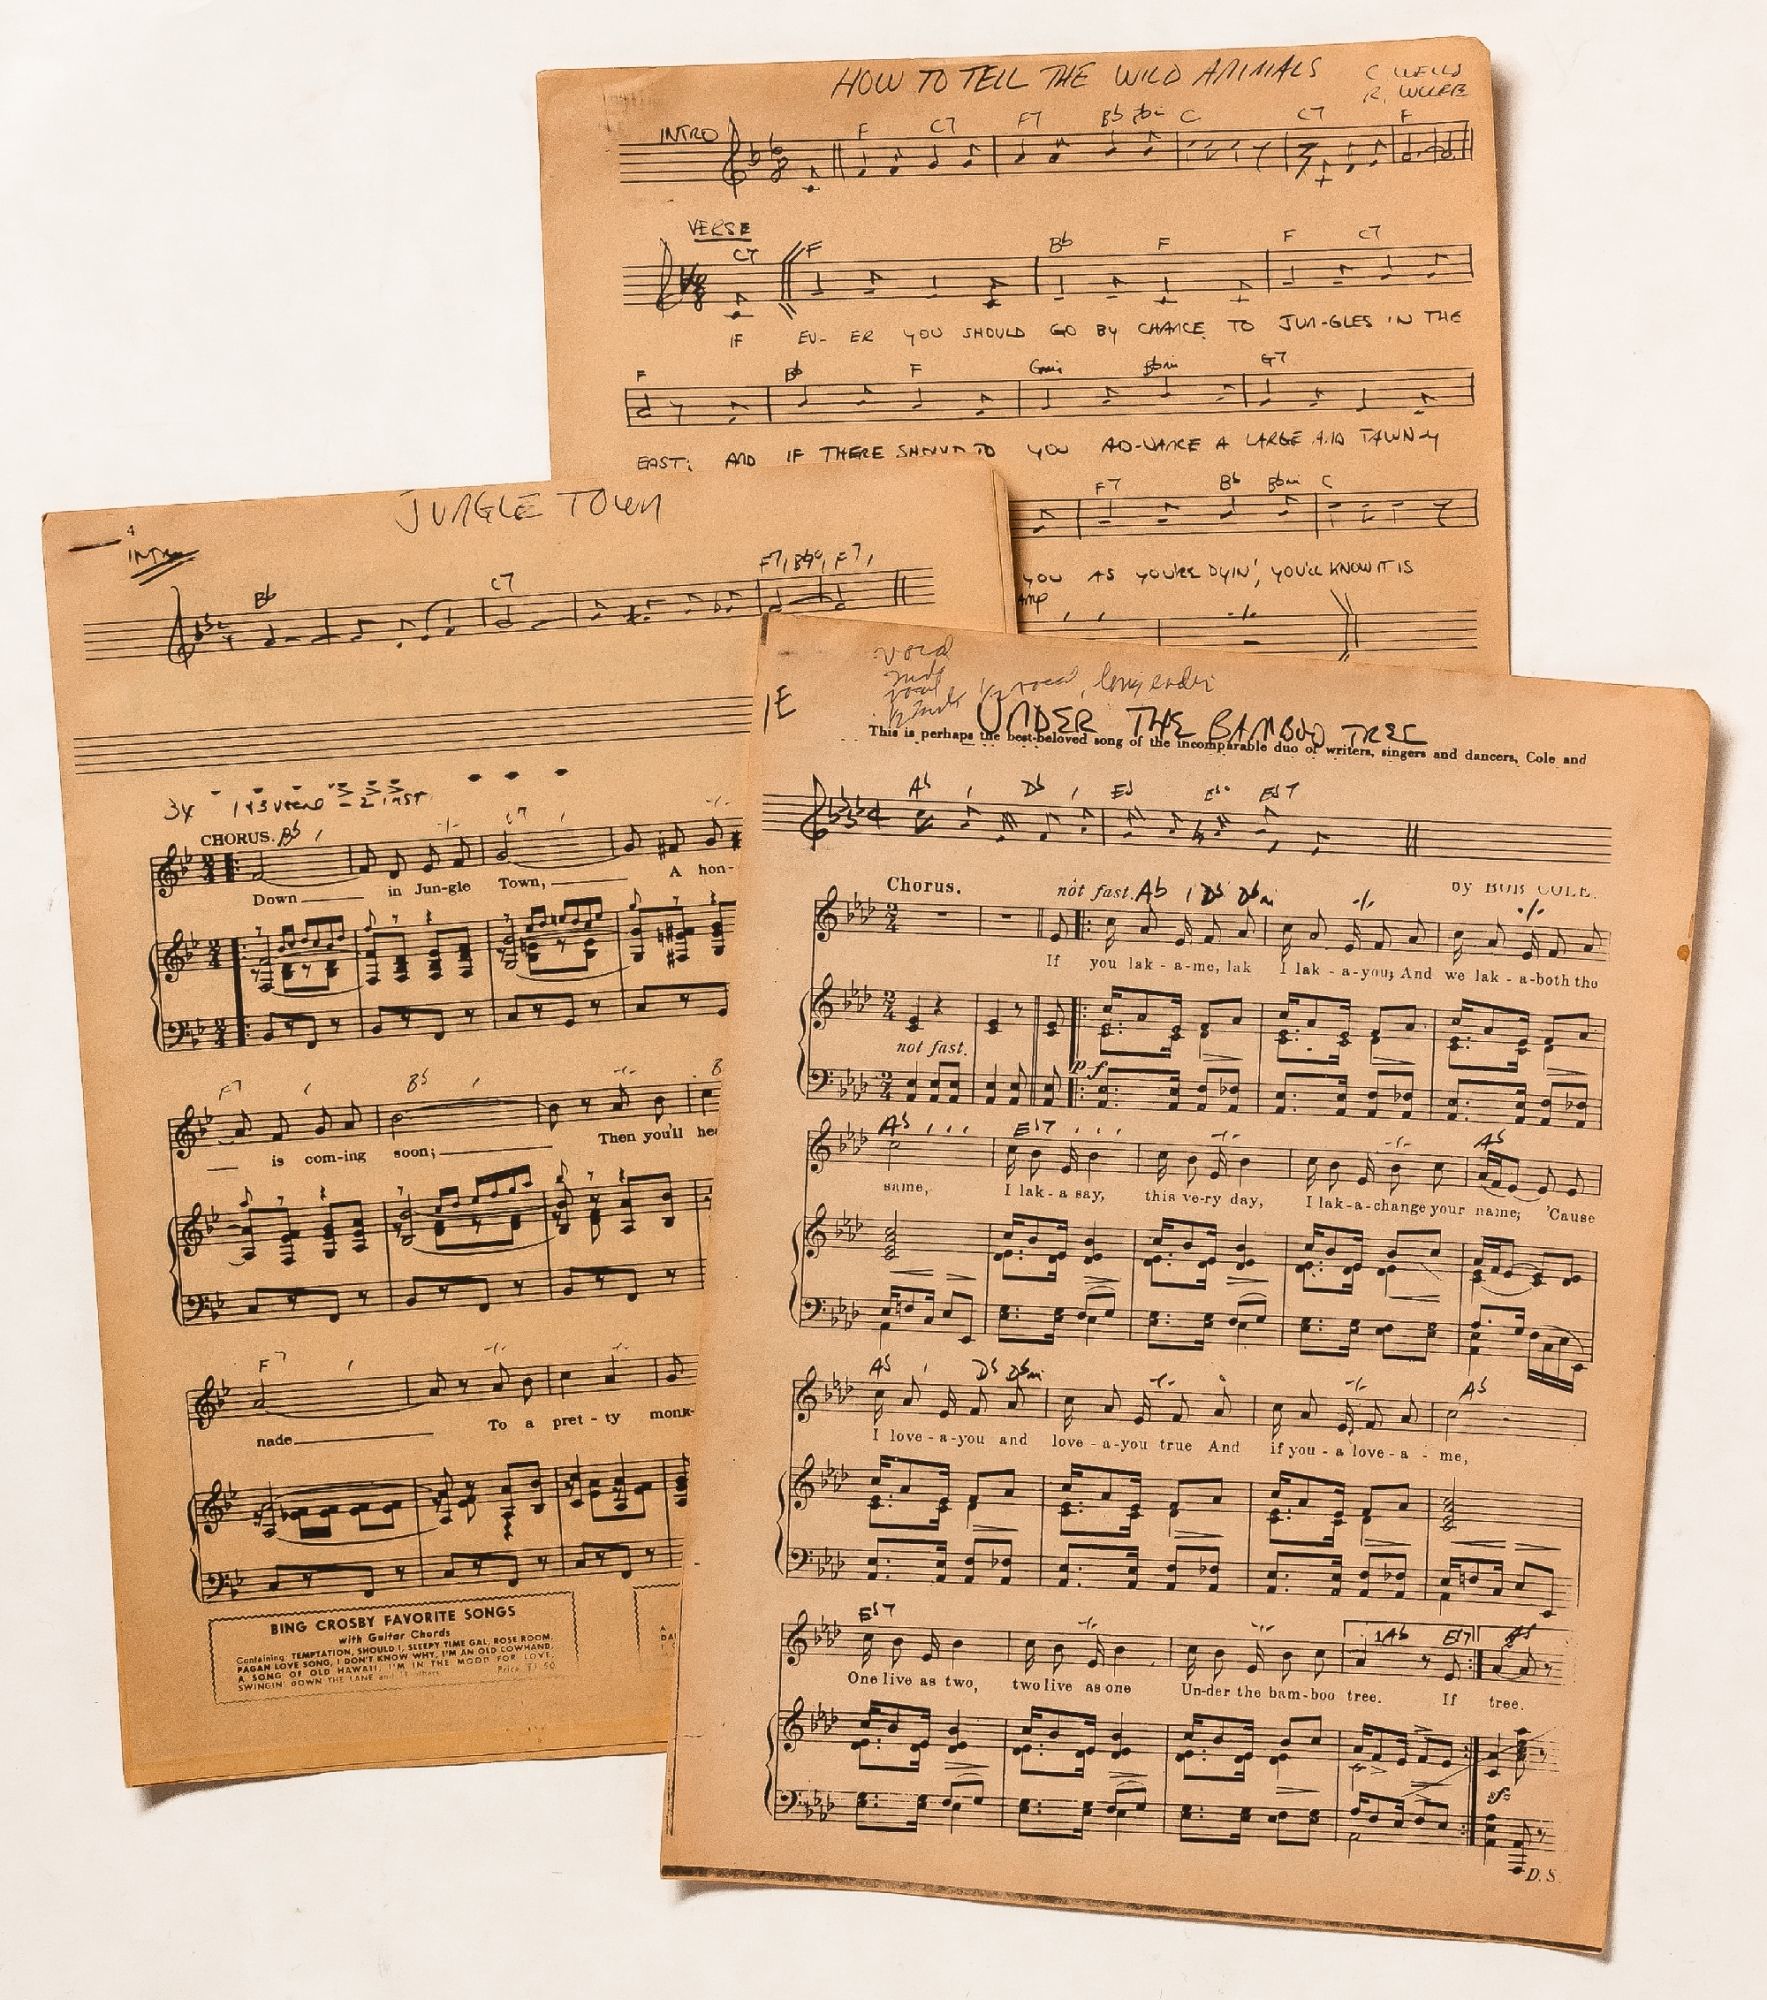 HOW TO TELL THE WILD ANIMALS
INTRO
F C7 F7 Bb Bbmi C C7 F
VERSE
C7 F Bb F F C7
IF EV- ER YOU SHOULD GO BY CHANCE TO JUN-GLES IN THE
F Bb F Gmi Bbmi G7
EAST; AND IF THERE SHOULD TO YOU AD-VANCE A LARGE AND TAWN-Y
F7 Bb Bbmi C
YOU AS YOU'RE DYIN', YOU'LL KNOW IT IS
JUNGLE TOWN
4
INTRO
Bb C7 F7
CHORUS. Bb C7
Down in Jun-gle Town, A hon-
F7 Bb
is com-ing soon; Then you'll hea
F7
nade To a pret - ty monk-
BING CROSBY FAVORITE SONGS
with Guitar Chords
Containing: TEMPTATION, SHOULD I, SLEEPY TIME GAL, ROSE ROOM,
PAGAN LOVE SONG, I DON'T KNOW WHY, I'M AN OLD COWHAND,
A SONG OF OLD HAWAII, I'M IN THE MOOD FOR LOVE,
SWINGIN' DOWN THE LANE and 11 others. Price
1E
vocal
UNDER THE BAMBOO TREE
This is perhaps the best-beloved song of the incomparable duo of writers, singers and dancers, Cole and
Ab Db Eb Eb7
Chorus. not fast. Ab Db Dbmi by BOB COLE.
If you lak - a-me, lak I lak - a-you; And we lak - a-both the
not fast.
p f
Ab Eb7 Ab
same, I lak - a say, this ve-ry day, I lak-a-change your name; 'Cause
Ab Db Dbmi Ab
I love - a-you and love - a-you true And if you - a love - a - me,
Eb7 1 Ab Eb7 Ab
One live as two, two live as one Un-der the bam-boo tree. If tree.
D.S.